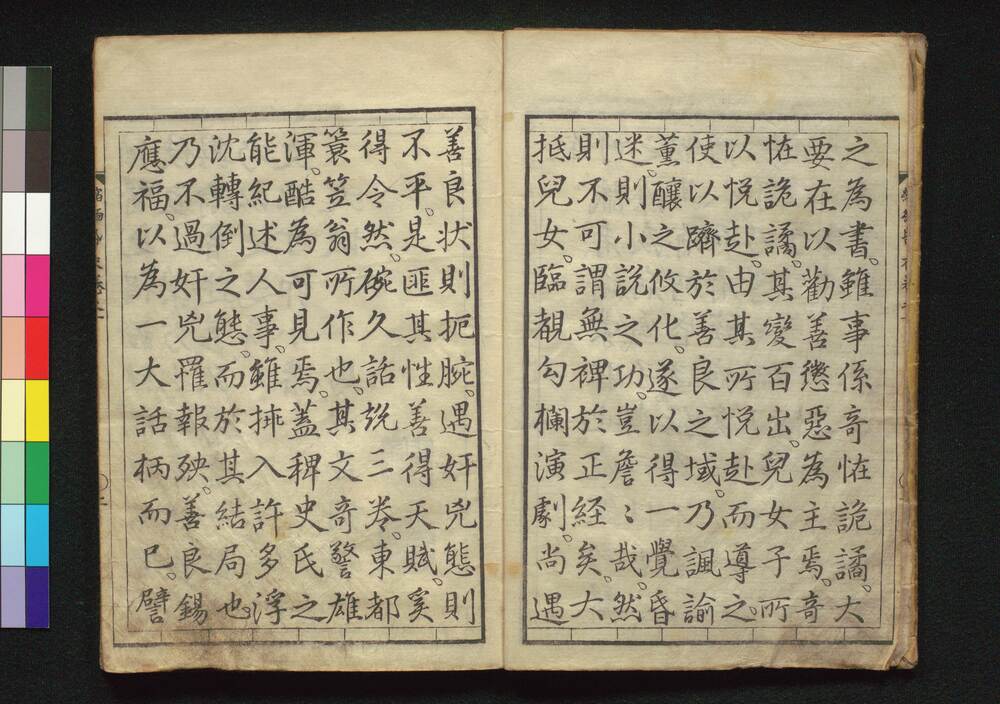 之為書。雖事係奇恠詭譎。大
要在以勸善懲惡為主焉。奇
恠詭譎。其變百出。兒女子所
以悦赴。由其所悦赴而導之。
使以躋於善良之域。乃諷諭
薰釀之攸化。遂以得一覺昏
迷。則小説之功。豈詹〻哉。然
則不可謂無裨於正経矣。大
抵兒女。臨覩勾欄演劇。尚遇
善良状則扼腕。遇奸兇態則
不平。是匪其性善得天賦。奚
得令然。碗久話説三巻。東都
簑笠翁所作也。其文奇警雄
渾。酷為可見焉。蓋稗史氏之
能紀述人事。雖排入許多浮
沈轉倒之態。而於其結局也。
乃不過奸兇罹報殃。善良錫
應福。以為一大話柄而已。譬